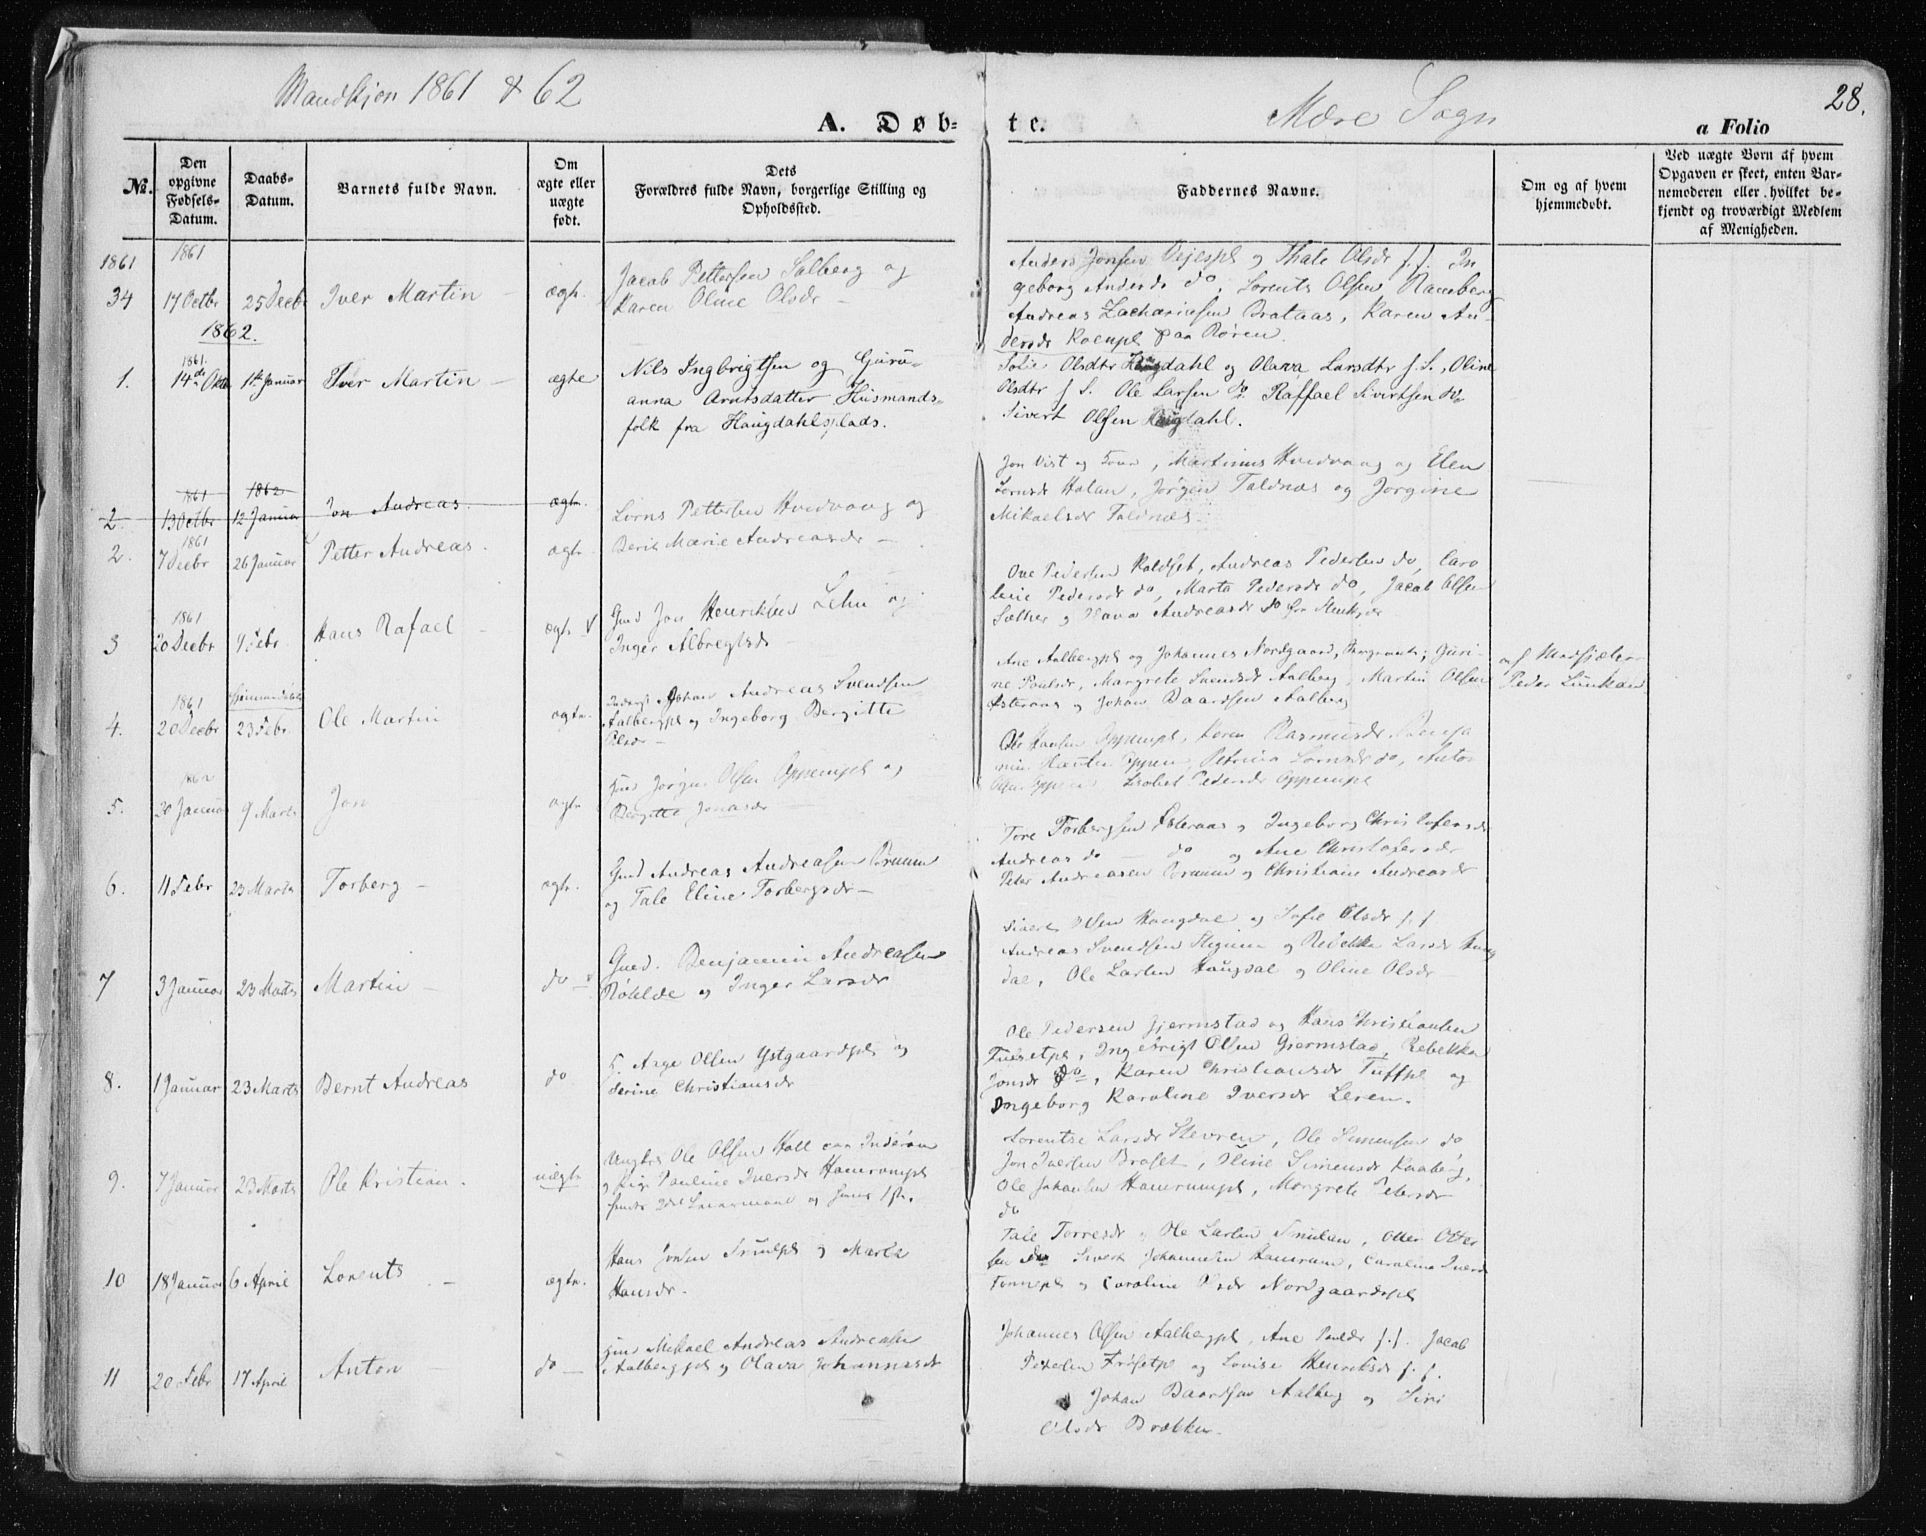 Mandkjøn 1861 & 62
Mære Sogn
28.
A. Døb-
te.
a Folio
No.
Den opgivne Fødsels-Datum.
Daabs-Datum.
Barnets fulde Navn.
Om ægte eller uægte født.
Dets Forældres fulde Navn, borgerlige Stilling og Opholdssted.
Faddernes Navne.
Om og af hvem hjemmedøbt.
Ved uægte Børn af hvem Opgaven er skeet, enten Barnemoderen eller hvilket bekjendt og troværdigt Medlem af Menigheden.
1861
1861
34 17 Octbr 25 Decb Iver Martin – ægt.
Jacob Pettersen Salberg og
Karen Oline Olsdr –
Anders Jonsen Vejespl og Thale Olsdr f.f. In
geborg Andersdr do, Lorents Olsen Ramberg
Andreas Zachariesen Brataas, Karen An-
dersdr paa Røren.
1862.
1861.
1. 14de Oktb 1ste Januar Iver Martin – ægte
Nils Ingbrigtsen og Guru-
anna Arntsdatter Husmands-
folk fra Haugdahlsplads.
Sofie Olsdtr Haugdahl og Olava Larsdtr f. S., Oline
Olsdtr f S. Ole Larsen do Raffael Sivertsen do
Sivert Olsen Haugdahl.
1861 1862
2. 13 Octbr 12 Januar Jon Andreas. ægt.
Jon Vist og , Martinus Hvedvang og Elen
Halan, Jørgen Taldnæs og Jørgine
Mikaelsdr Taldnæs.
1861
2. 7 Decbr 26 Januar Petter Andreas. ægt.
Lorns Pettersen Hvedvang og
Berit Marie Andreasdr –
Ove Pedersen Kaldset, Andreas Pedersen do, Caro
line Pedersdr do, Marta Pedersdr do, Jacob Olsen
Sæther og Andreasdr do
1861
3 20 Decbr 9 Febr. Hans Rafael – ægt. v
Gmd Jon Henriksen Lehn og
Inger Albregtsdr –
Ane Aalbergpl og Johannes Nordgaard, Guri-
ne Paulsdr, Margrete Svendsdr Aalberg, Martin Olsen
Østeraas og Johan Baardsen Aalberg
af
Peder
1861
4. 20 Decbr 23 Febr. Ole Martin ægt.
Johan Andreas Svendsen
Aalbergpl og Ingeborg Bergitte
Olsdr –
Ole Hansen Oppempl, Karen Rasmusdr Benja
min Oppem, Petrina Lornsdr do, Anton
Olsen Oppem Pedersdr Oppempl
1862
5. 30 Januar 9 Marts Jon ægt.
Gmd Jørgen Olsen Oppempl og
Bergitte Jonasdr –
Tore Torbergsen Østeraas og Ingeborg Christofersdr
Andreas do – do og Ane Christofersdr
Peter Andreasen Brumm og Christiane Andreasdr
6. 11 Febr 23 Marts Torberg – ægt.
Gmd Andreas Andreasen Brumm
og Tale Eline Torbergsdr –
Sivert Olsen Haugdal og Sofie Olsdr f.f
Andreas Svendsen Stigum og Rebekka Larsdr Haug
dal, Ole Larsen Haugdal og Oline Olsdr –
7 3 Januar 23 Marts Martin – do –
Gmd. Benjamin Andreasen
Røhlde og Inger Larsdr
Ole Pedersen Gjermstad og Hans Christiansen
Tuesetpl, Ingebrigt Olsen Gjermstad, Rebekka
Jonsdr do, Karen Christiansdr Tuffpl og
Ingeborg Karoline Iversdr Leren.
8. 1 Januar 23 Marts Bernt Andreas do
Aage Olsen Ystgaardspl og
Serine Christiansdr
Lorentse Larsdr Stevren, Ole Simensen do
Jon Iversen Braset, Oline Simensdr
Ole Johansen Hamrumpl, Margrete Petersdr
do
9. 7 Januar 23 Marts Ole Kristian. uægt.
Ungkrl Ole Olsen Hall paa Inderøen
og Pige Pauline Iversdr Hamrumpl
Tale Torresdr og Ole Larsen Smulan, Otter Otter
sen do Sivert Johannesen Hamrum, Caroline Iversdr
og Caroline Nordgaardspl
10 18 Januar 6 April Lorents – ægt.
Hans Jonsen og Marta
Hansdr.
Johannes Olsen Aalbergpl, Ane f.f. Jacob
Petersen Frøsetpl og Lovise Henriksdr f. f.
Johan Baardsen Aalberg og Siri
Olsdr Brækken.
11 20 Febr 17 April Anton – do –
Gmd Mikael Andreas Andreasen
Aalbergpl og Olava Johannesdr